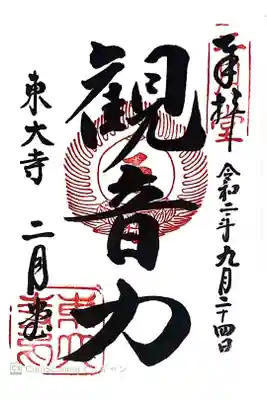 奉拝
令和二年九月二十四日
観音力
東大寺
二月堂